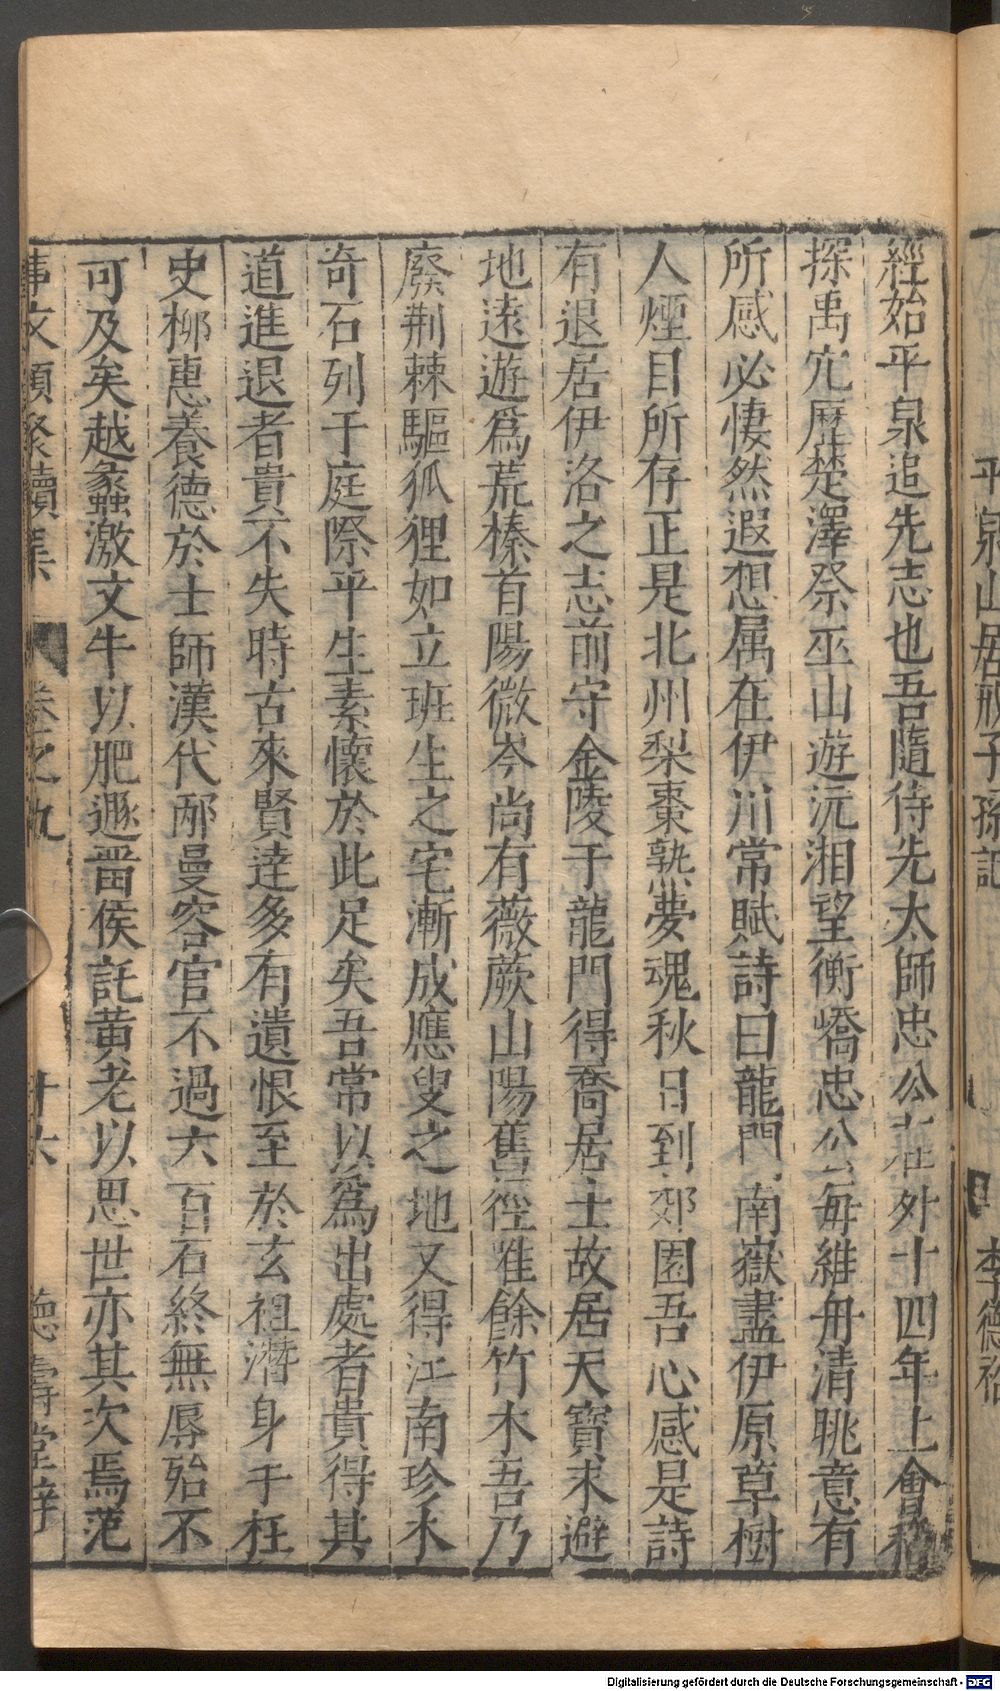 平泉山居戒子孫記 李德裕
經始平泉追先志也吾隨侍先太師忠公在外十四年上會稽
探禹穴歷楚澤祭巫山遊沅湘望衡嶠忠公每維舟清眺意有
所感必悽然遐想属在伊川常賦詩曰龍門南嶽盡伊原草樹
人煙目所存正是北州梨棗熟夢魂秋日到郊園吾心感是詩
有退居伊洛之志前守金陵于龍門得喬居士故居天寶末避
地遠遊爲荒榛首陽微岑尚有薇蕨山陽舊徑唯餘竹木吾乃
廢荆棘驅狐狸如立班生之宅漸成應叟之地又得江南珍木
奇石列于庭際平生素懷於此足矣吾常以爲出處者貴得其
道進退者貴不失時古來賢逹多有遺恨至於玄祖潛身于柱
史柳惠養德於士師漢代邴曼容官不過六百石終無辱殆不
可及矣越蠡激文牛以肥遯畱侯託黃老以思世亦其次焉范
事文類聚續集 卷之九 十六 德壽堂梓
Digitalisierung gefördert durch die Deutsche Forschungsgemeinschaft - DFG